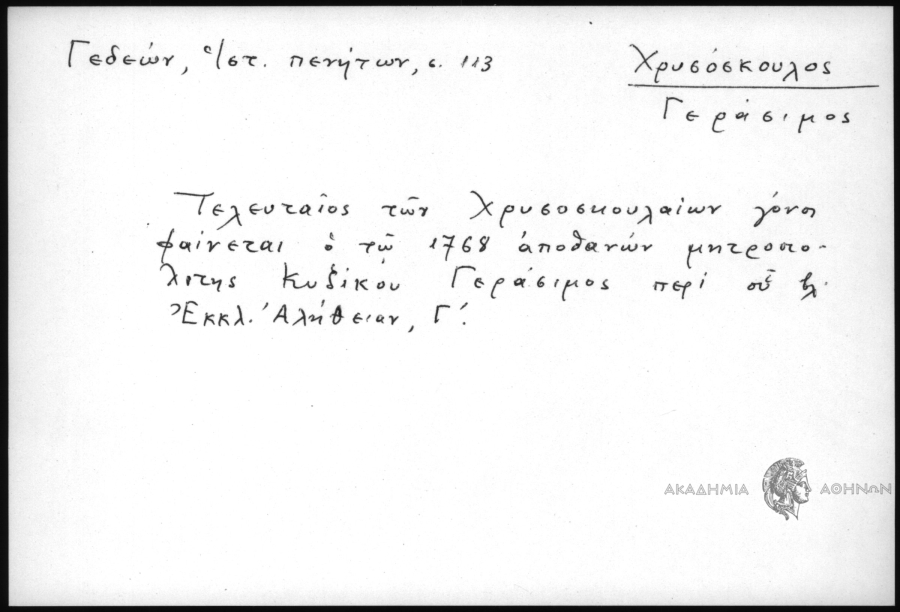 Γεδεών, Ἱστ. πενήτων, σ. 113
Χρυσόσκουλος
Γεράσιμος
Τελευταῖος τῶν Χρυσοσκουλαίων γόνος
φαίνεται ὁ τῷ 1768 ἀποθανών μητροπο-
λίτης Κυζίκου Γεράσιμος περί οὗ βλ.
Ἐκκλ. Ἀλήθειαν, Γ΄.
ΑΚΑΔΗΜΙΑ ΑΘΗΝΩΝ